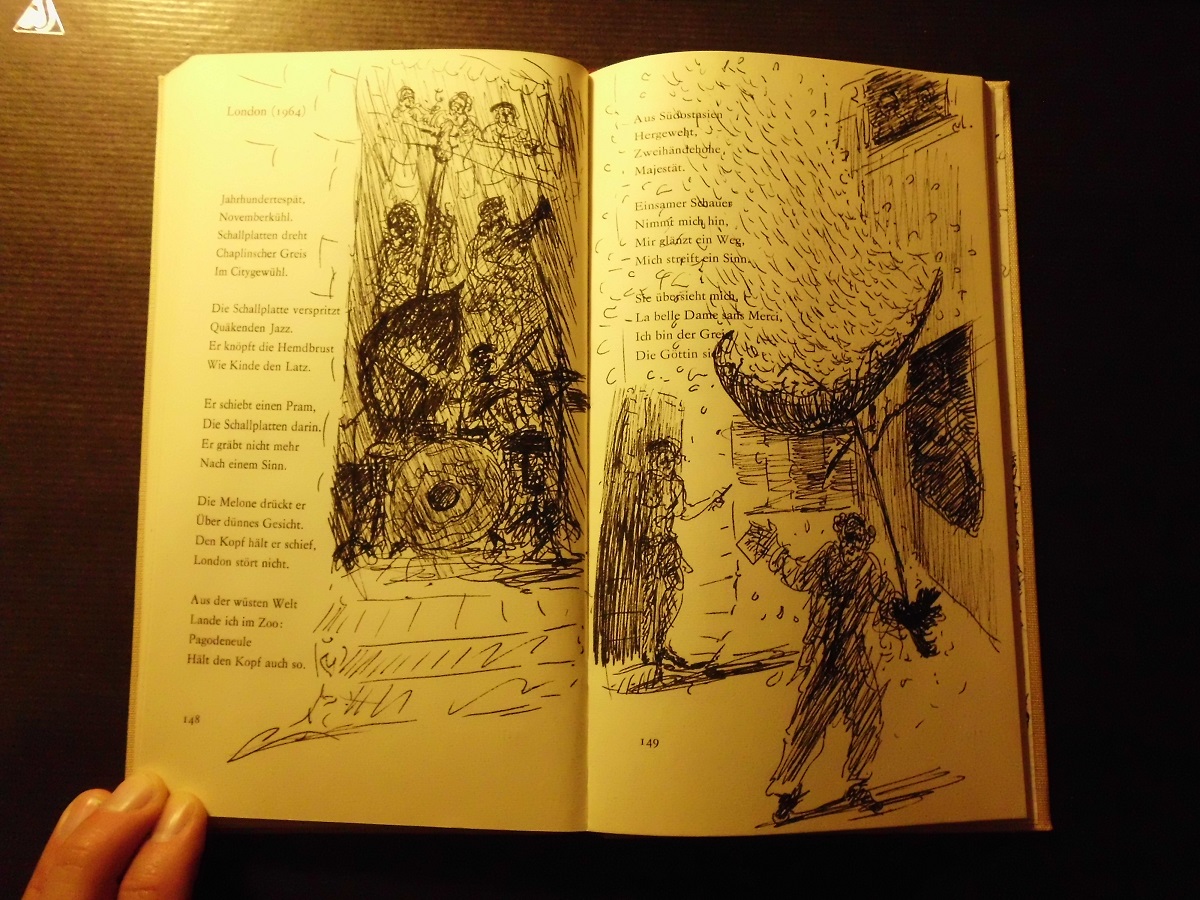 London (1964)
Jahrhundertespät,
Novemberkühl.
Schallplatten dreht
Chaplinscher Greis
Im Citygewühl.
Die Schallplatte verspritzt
Quäkenden Jazz.
Er knöpft die Hemdbrust
Wie Kinde den Latz.
Er schiebt einen Pram,
Die Schallplatten darin.
Er gräbt nicht mehr
Nach einem Sinn.
Die Melone drückt er
Über dünnes Gesicht.
Den Kopf hält er schief,
London stört nicht.
Aus der wüsten Welt
Lande ich im Zoo:
Pagodeneule
Hält den Kopf auch so.
148
Aus Südostasien
Hergeweht,
Zweihändehohe
Majestät.
Einsamer Schauer
Nimmt mich hin,
Mir glänzt ein Weg,
Mich streift ein Sinn.
Sie übersieht mich,
La belle Dame sans Merci,
Ich bin der Greis
Die Göttin
149